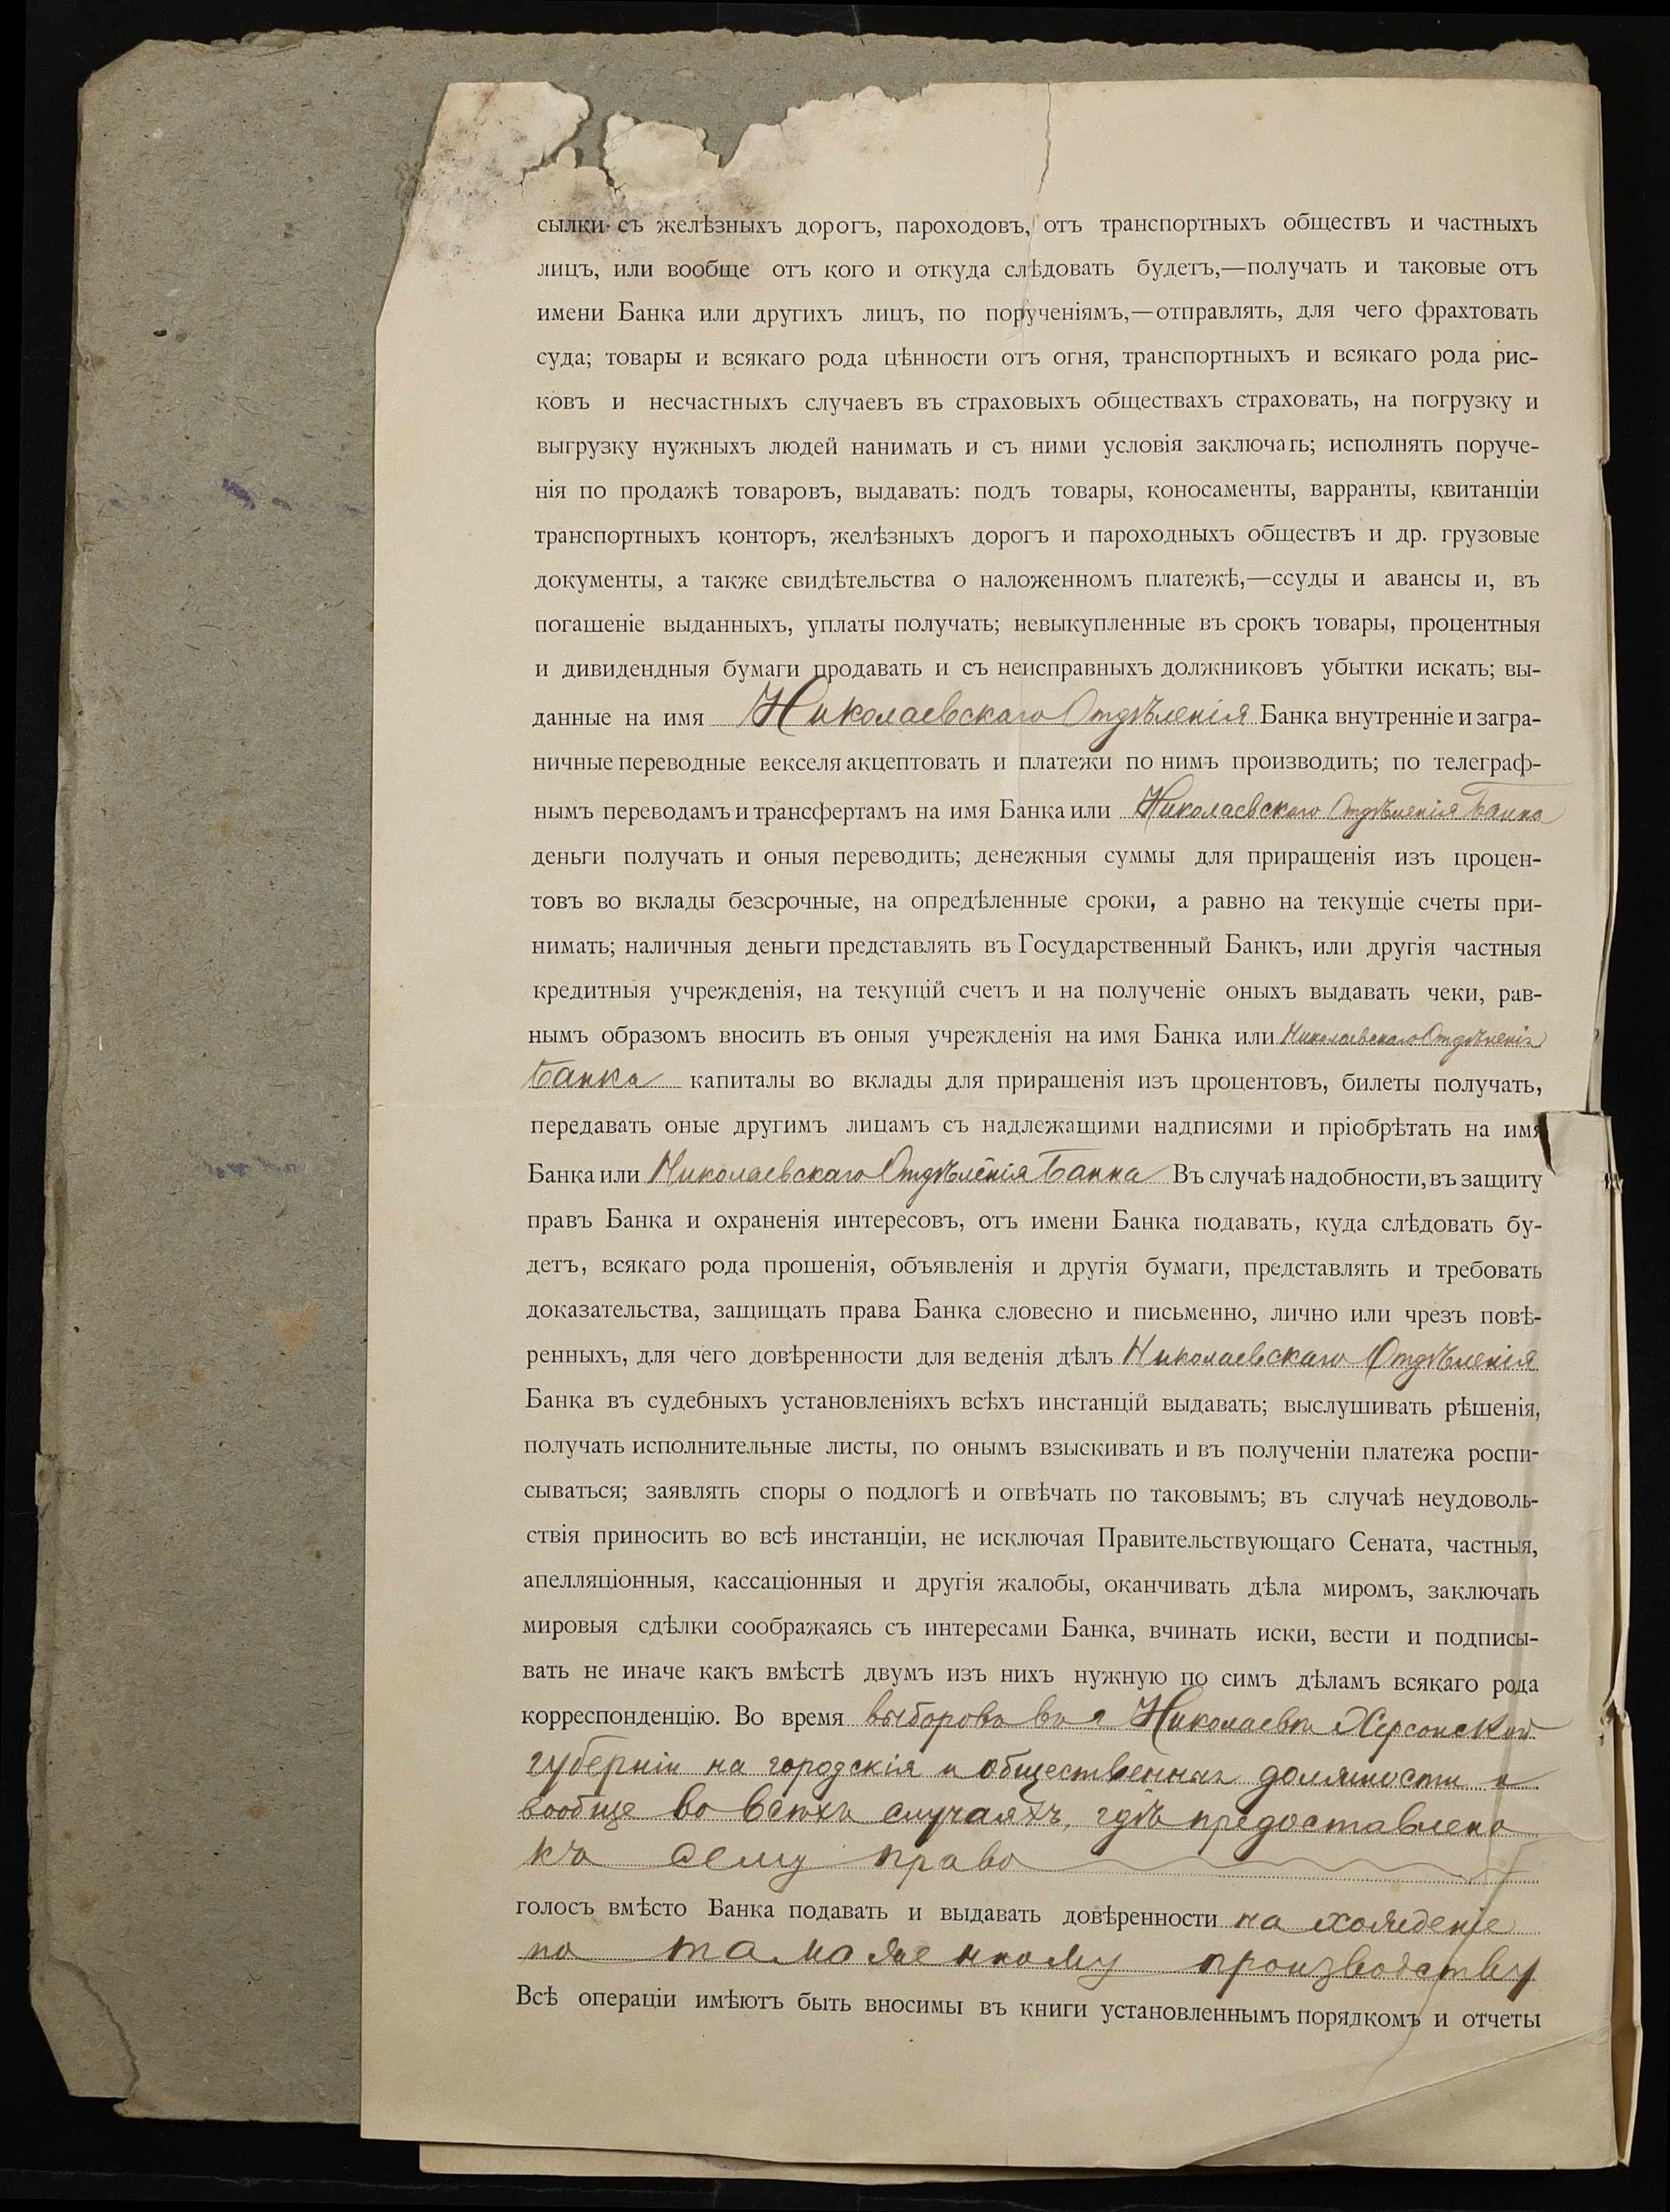 сылки съ желѣзныхъ дорогъ, пароходовъ, отъ транспортныхъ обществъ и частныхъ
лицъ, или вообще отъ кого и откуда слѣдовать будетъ,—получать и таковые отъ
имени Банка или другихъ лицъ, по порученіямъ,—отправлять, для чего фрахтовать
суда; товары и всякаго рода цѣнности отъ огня, транспортныхъ и всякаго рода рис-
ковъ и несчастныхъ случаевъ въ страховыхъ обществахъ страховать, на погрузку и
выгрузку нужныхъ людей нанимать и съ ними условія заключать; исполнять поруче-
нія по продажѣ товаровъ, выдавать: подъ товары, коносаменты, варранты, квитанціи
транспортныхъ конторъ, желѣзныхъ дорогъ и пароходныхъ обществъ и др. грузовые
документы, а также свидѣтельства о наложенномъ платежѣ,—ссуды и авансы и, въ
погашеніе выданныхъ, уплаты получать; невыкупленные въ срокъ товары, процентныя
и дивидендныя бумаги продавать и съ неисправныхъ должниковъ убытки искать; вы-
данные на имя Николаевскаго Отдѣленія Банка внутренніе и загра-
ничные переводные векселя акцептовать и платежи по нимъ производить; по телеграф-
нымъ переводамъ и трансфертамъ на имя Банка или Николаевскаго Отдѣленія Банка
деньги получать и оныя переводить; денежныя суммы для приращенія изъ процен-
товъ во вклады безсрочные, на опредѣленные сроки, а равно на текущіе счеты при-
нимать; наличныя деньги представлять въ Государственный Банкъ, или другія частныя
кредитныя учрежденія, на текущій счетъ и на полученіе оныхъ выдавать чеки, рав-
нымъ образомъ вносить въ оныя учрежденія на имя Банка или Николаевскаго Отдѣленія
Банка капиталы во вклады для приращенія изъ процентовъ, билеты получать,
передавать оные другимъ лицамъ съ надлежащими надписями и пріобрѣтать на имя
Банка или Николаевскаго Отдѣленія Банка Въ случаѣ надобности, въ защиту
правъ Банка и охраненія интересовъ, отъ имени Банка подавать, куда слѣдовать бу-
детъ, всякаго рода прошенія, объявленія и другія бумаги, представлять и требовать
доказательства, защищать права Банка словесно и письменно, лично или чрезъ повѣ-
ренныхъ, для чего довѣренности для веденія дѣлъ Николаевскаго Отдѣленія
Банка въ судебныхъ установленіяхъ всѣхъ инстанцій выдавать; выслушивать рѣшенія,
получать исполнительные листы, по онымъ взыскивать и въ полученіи платежа роспи-
сываться; заявлять споры о подлогѣ и отвѣчать по таковымъ; въ случаѣ неудоволь-
ствія приносить во всѣ инстанціи, не исключая Правительствующаго Сената, частныя,
апелляціонныя, кассаціонныя и другія жалобы, оканчивать дѣла миромъ, заключать
мировыя сдѣлки соображаясь съ интересами Банка, вчинать иски, вести и подписы-
вать не иначе какъ вмѣстѣ двумъ изъ нихъ нужную по симъ дѣламъ всякаго рода
корреспонденцію. Во время выборовъ въ г Николаевѣ Херсонской
губерніи на городскія и общественныя должности и
вообще во всѣхъ случаяхъ, гдѣ предоставлено
къ сему право
голосъ вмѣсто Банка подавать и выдавать довѣренности на хожденіе
по таможенному производству
Всѣ операціи имѣютъ быть вносимы въ книги установленнымъ порядкомъ и отчеты